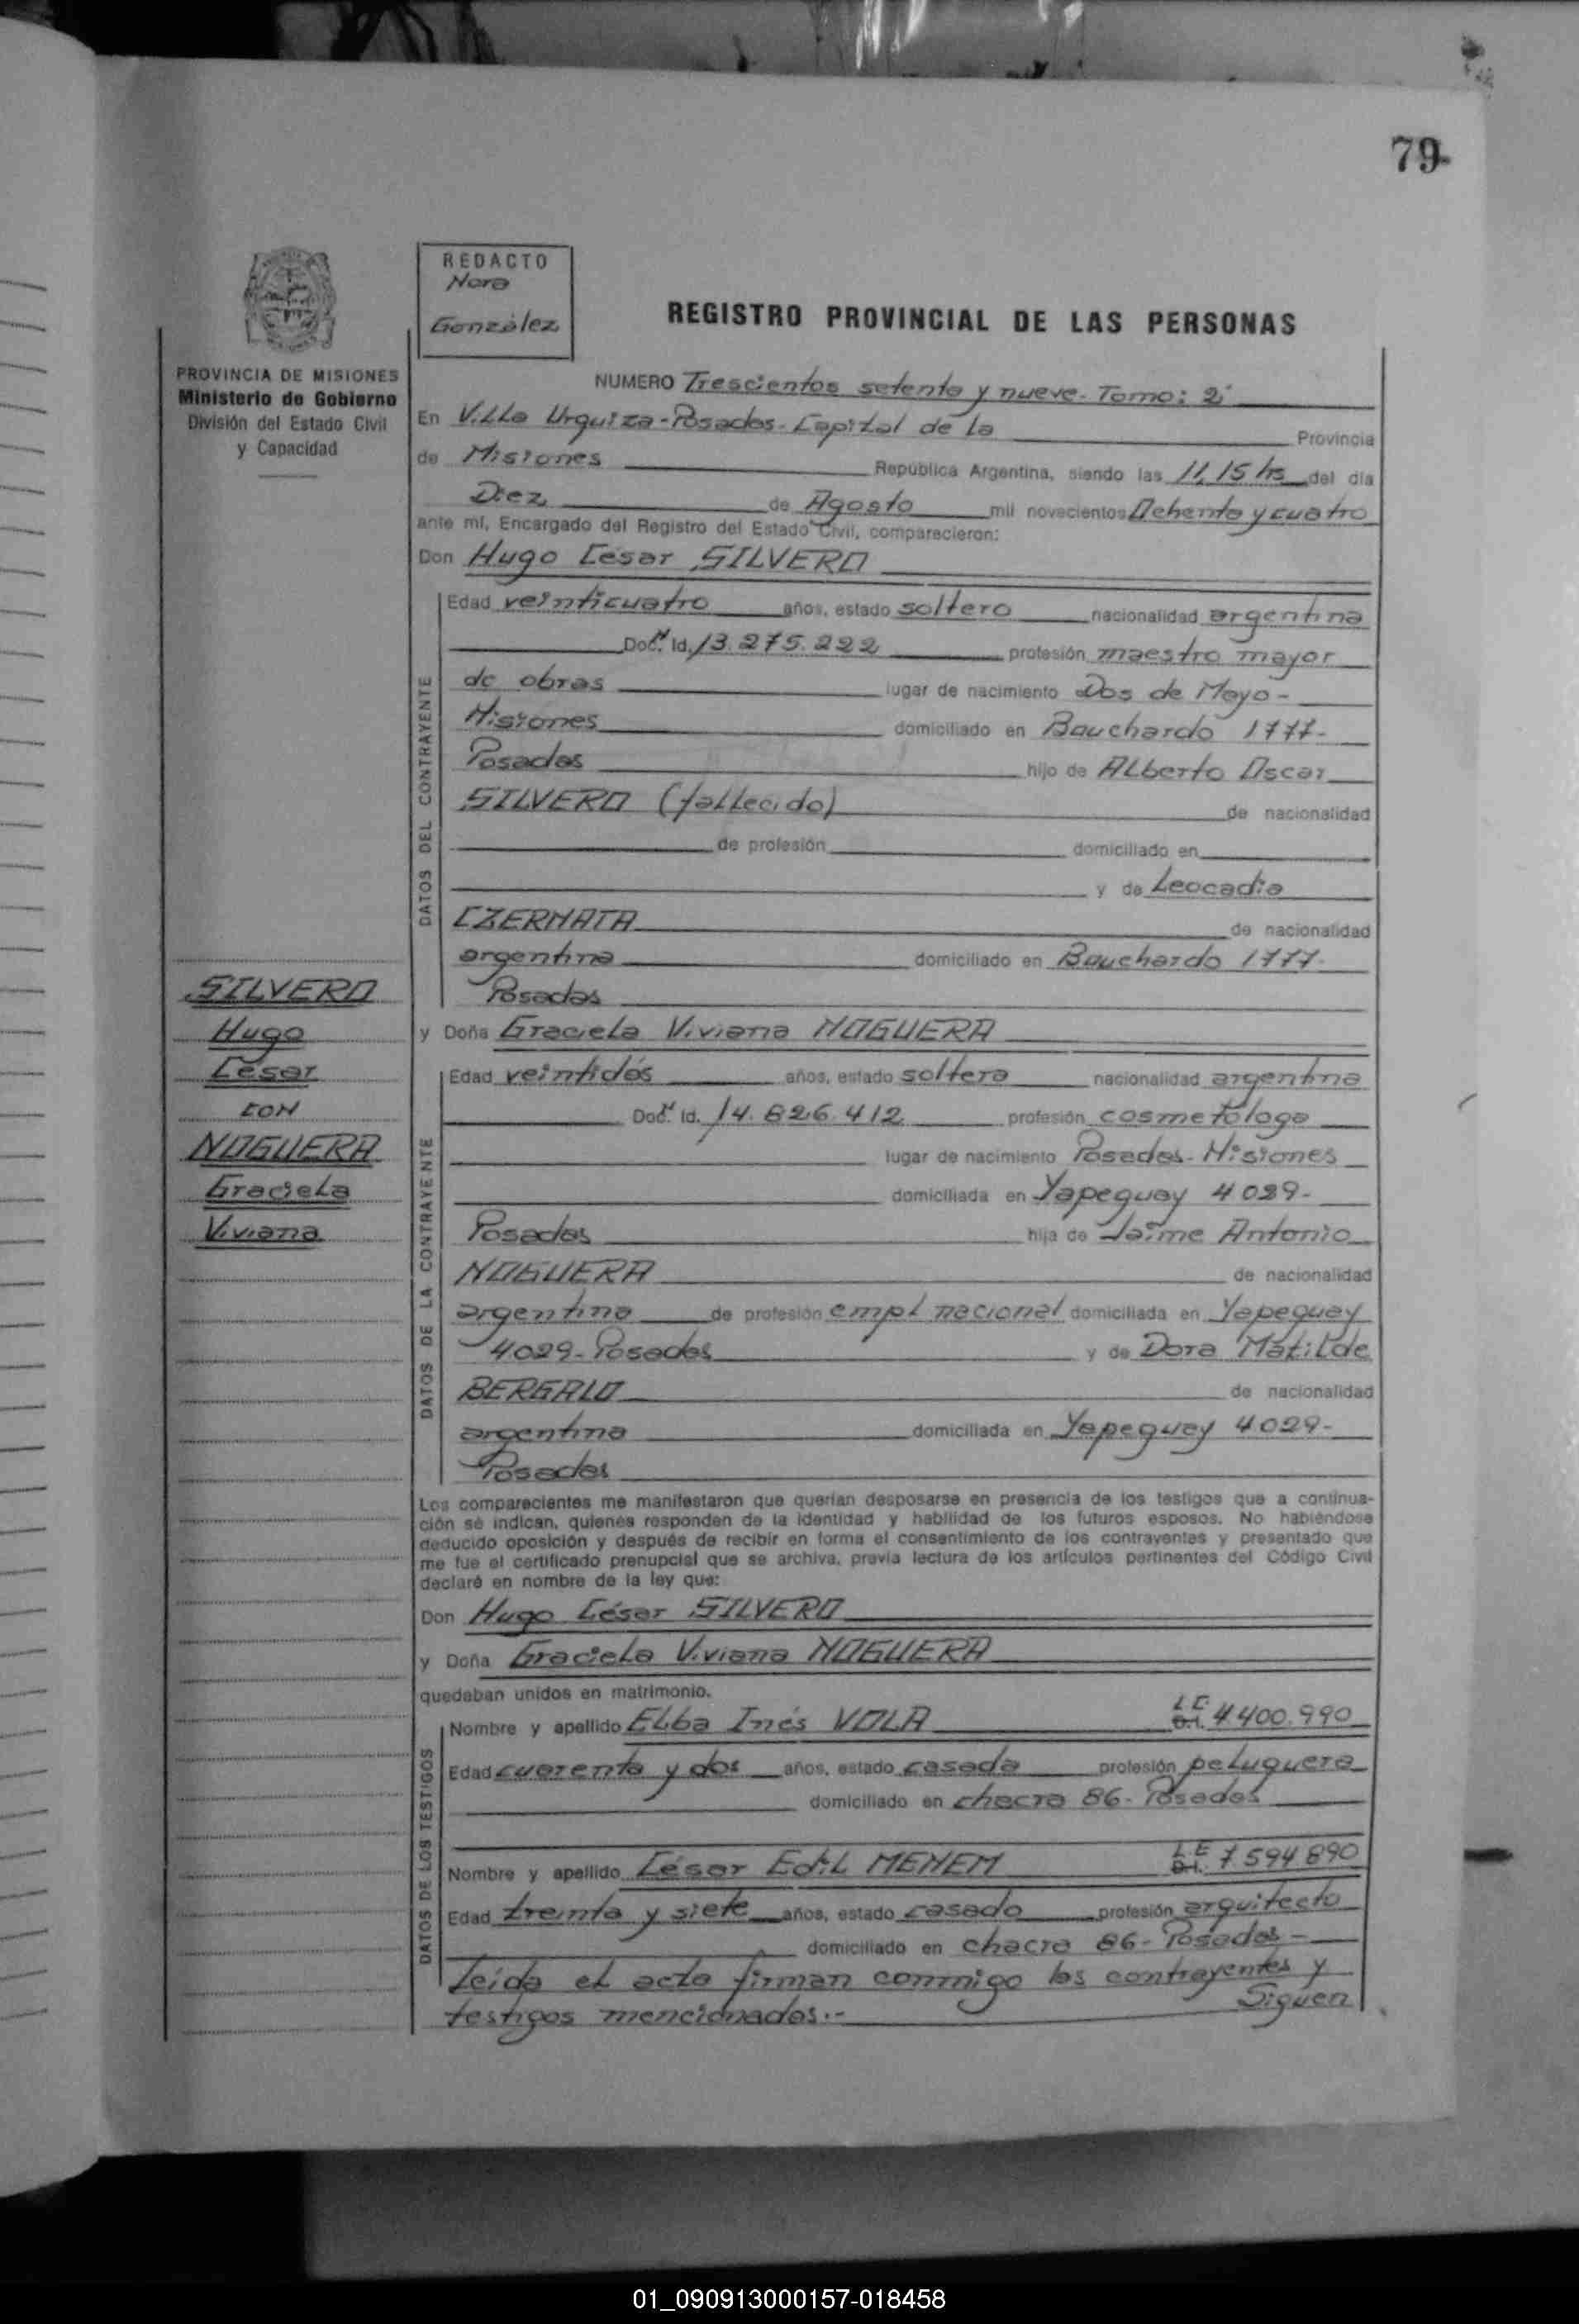 79-
REDACTO
Nora
González
REGISTRO PROVINCIAL DE LAS PERSONAS
PROVINCIA DE MISIONES
Ministerio de Gobierno
División del Estado Civil
y Capacidad
NUMERO Trescientos setenta y nueve- Tomo: 2º
En Villa Urquiza-Posadas-Capital de la Provincia
de Misiones República Argentina, siendo las 11,15 hs del día
Diez de Agosto mil novecientos Ochenta y cuatro
ante mí, Encargado del Registro del Estado Civil, comparecieron:
Don Hugo César SILVERO
DATOS DEL CONTRAYENTE
Edad veinticuatro años, estado soltero nacionalidad argentina
Doc. Id. 13.275.222 profesión maestro mayor
de obras lugar de nacimiento Dos de Mayo-
Misiones domiciliado en Bouchardo 1777-
Posadas hijo de Alberto Oscar
SILVERO (fallecido) de nacionalidad
de profesión domiciliado en
y de Leocadia
CZERMATA de nacionalidad
argentina domiciliado en Bouchardo 1777-
Posadas
SILVERO
Hugo
César
CON
NOGUERA
Graciela
Viviana
y Doña Graciela Viviana NOGUERA
DATOS DE LA CONTRAYENTE
Edad veintidós años, estado soltera nacionalidad argentina
Doc. Id. 14.826.412 profesión cosmetóloga
lugar de nacimiento Posadas-Misiones
domiciliada en Yapeguay 4029-
Posadas hija de Jaime Antonio
NOGUERA de nacionalidad
argentina de profesión empl nacional domiciliada en Yapeguay
4029-Posadas y de Dora Matilde
BERGALO de nacionalidad
argentina domiciliada en Yapeguay 4029-
Posadas
Los comparecientes me manifestaron que querían desposarse en presencia de los testigos que a continua-
ción se indican, quienes responden de la identidad y habilidad de los futuros esposos. No habiéndose
deducido oposición y después de recibir en forma el consentimiento de los contrayentes y presentado que
me fue el certificado prenupcial que se archiva, previa lectura de los artículos pertinentes del Código Civil
declaré en nombre de la ley que:
Don Hugo César SILVERO
y Doña Graciela Viviana NOGUERA
quedaban unidos en matrimonio.
DATOS DE LOS TESTIGOS
Nombre y apellido Elba Inés VOLA L.C. D.I. 4.400.990
Edad cuarenta y dos años, estado casada profesión peluquera
domiciliado en chacra 86- Posadas
Nombre y apellido César Edil MENEM L.E D.I. 7.594.890
Edad treinta y siete años, estado casado profesión arquitecto
domiciliado en chacra 86- Posadas-
Leída el acta firman conmigo los contrayentes y
testigos mencionados.- Siguen
01_090913000157-018458